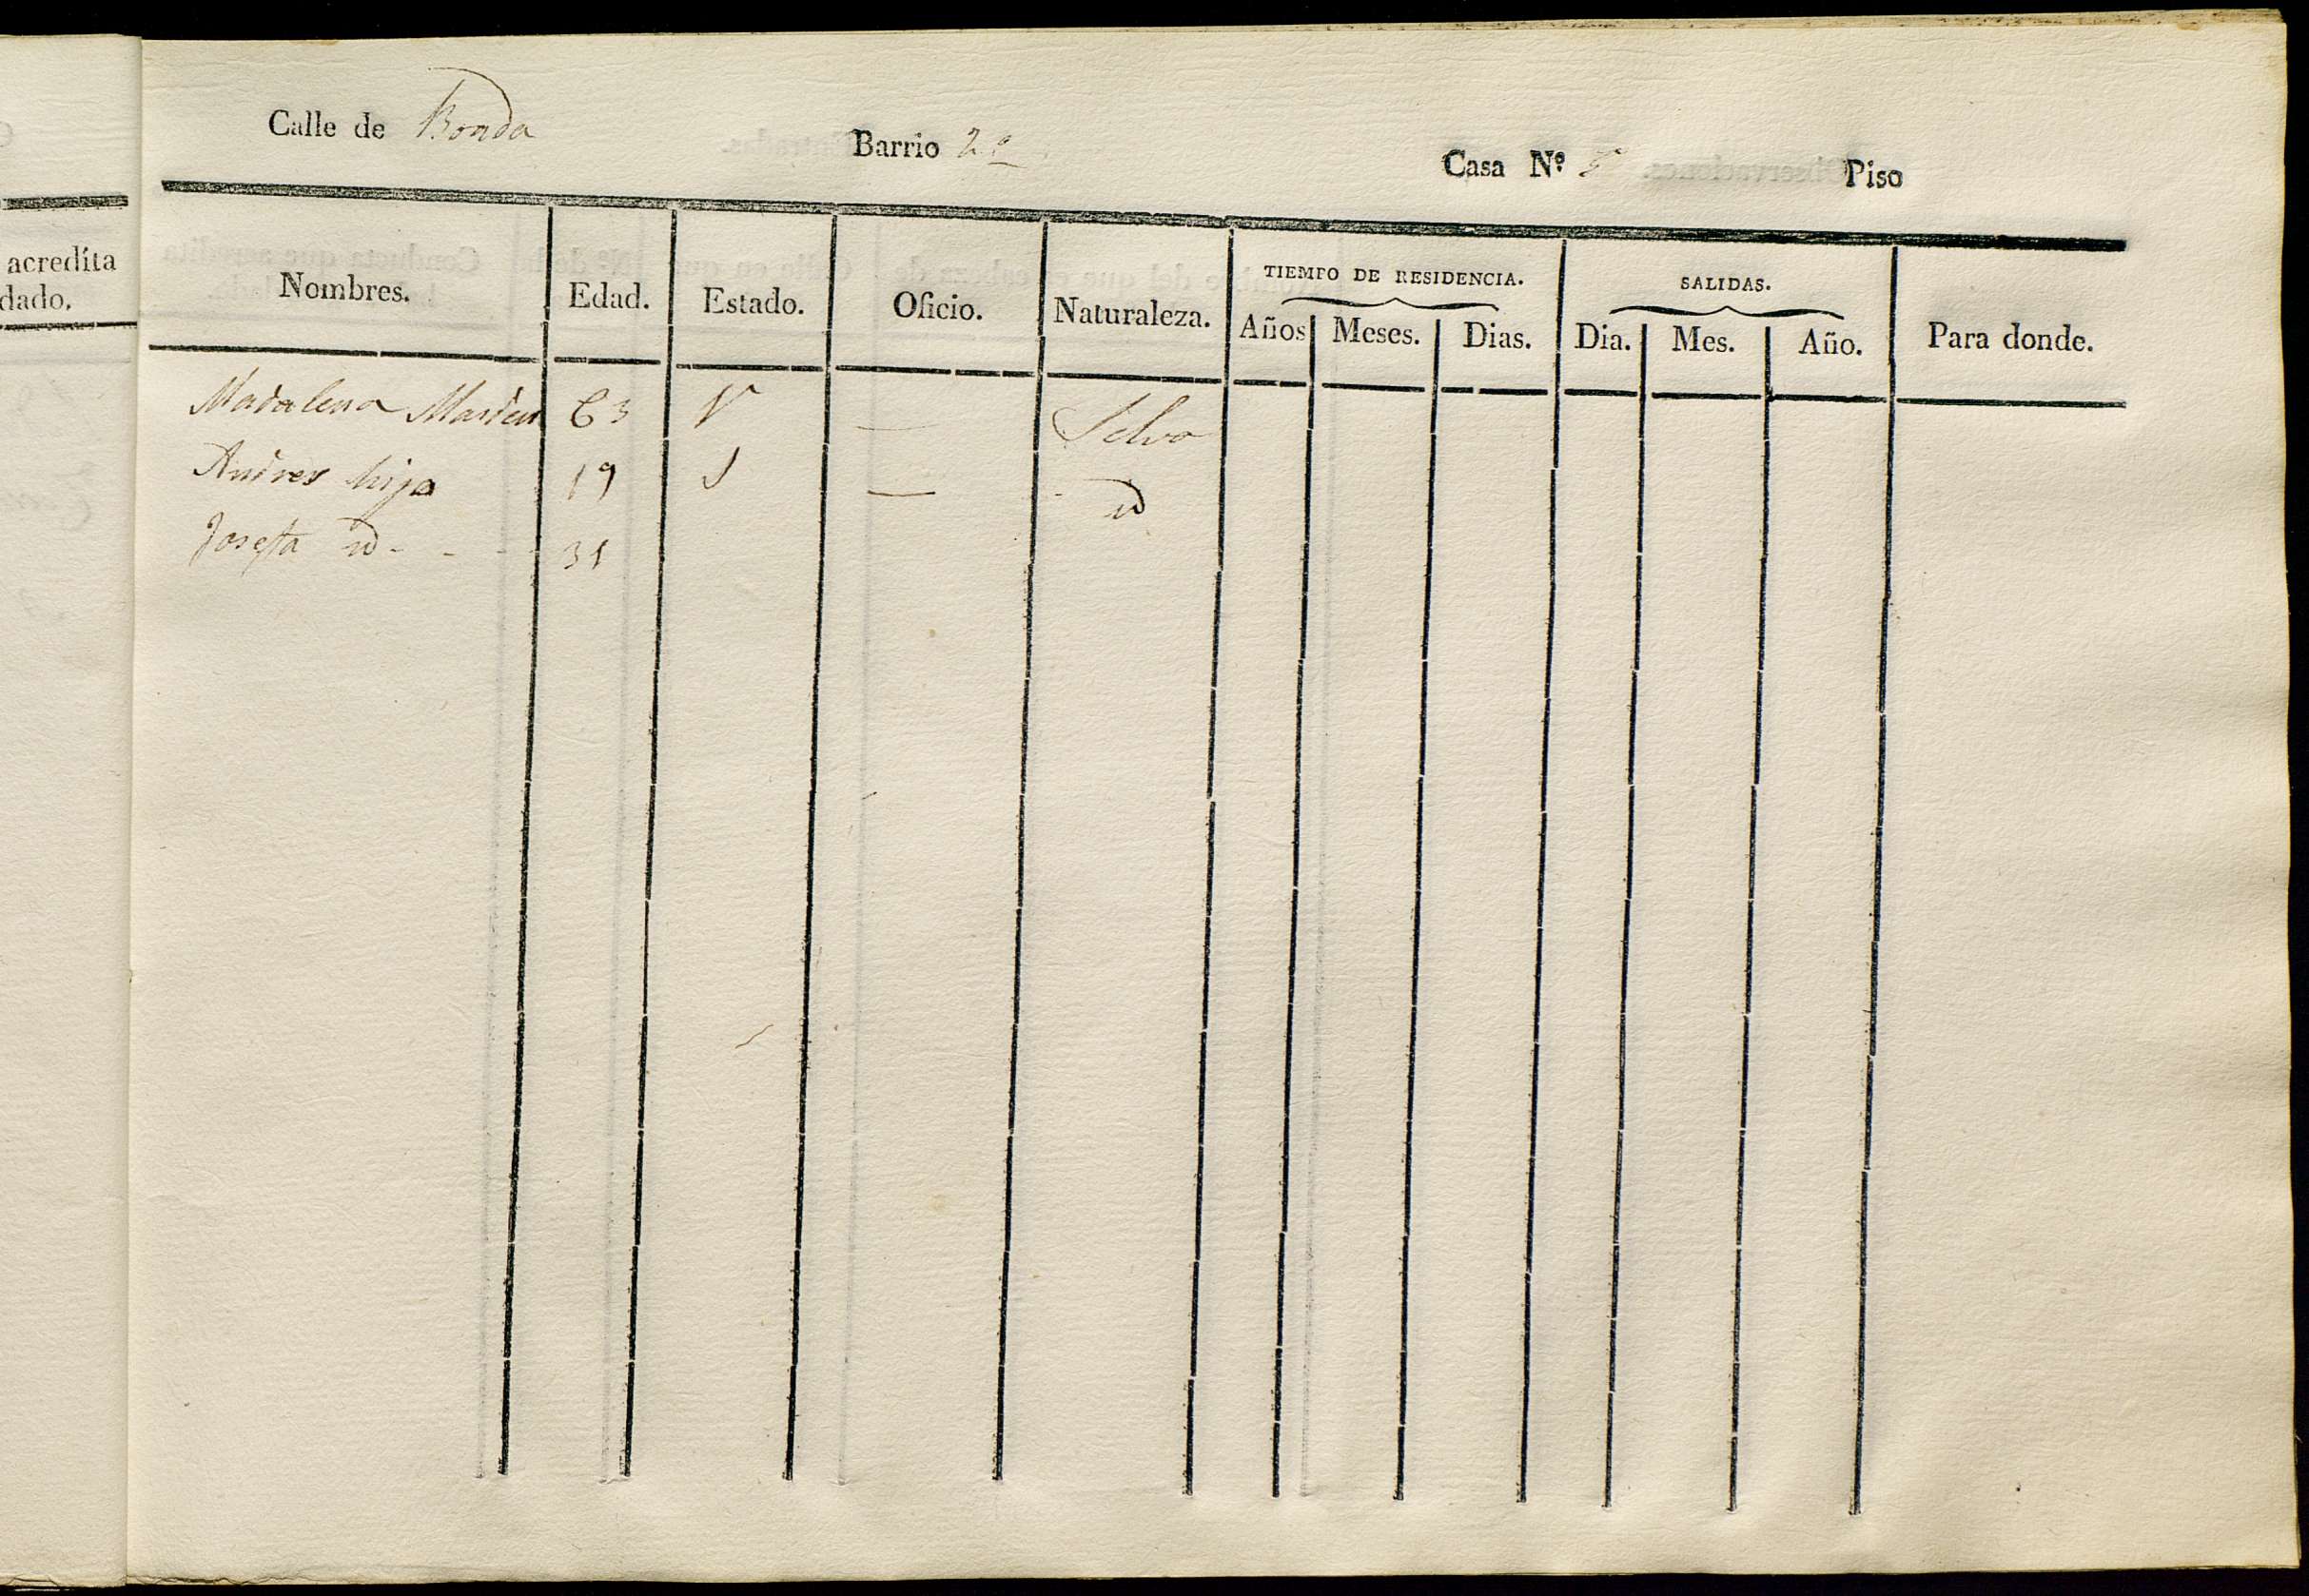 acredita
dado.
Calle de Ronda Barrio 2º Casa Nº Piso
Nombres. Edad. Estado. Oficio. Naturaleza. TIEMPO DE RESIDENCIA. SALIDAS. Para donde.
Años Meses. Dias. Dia. Mes. Año.
Madalena 63 V — Selva
Andres hijo 19 S — id
Josefa id - - - 31